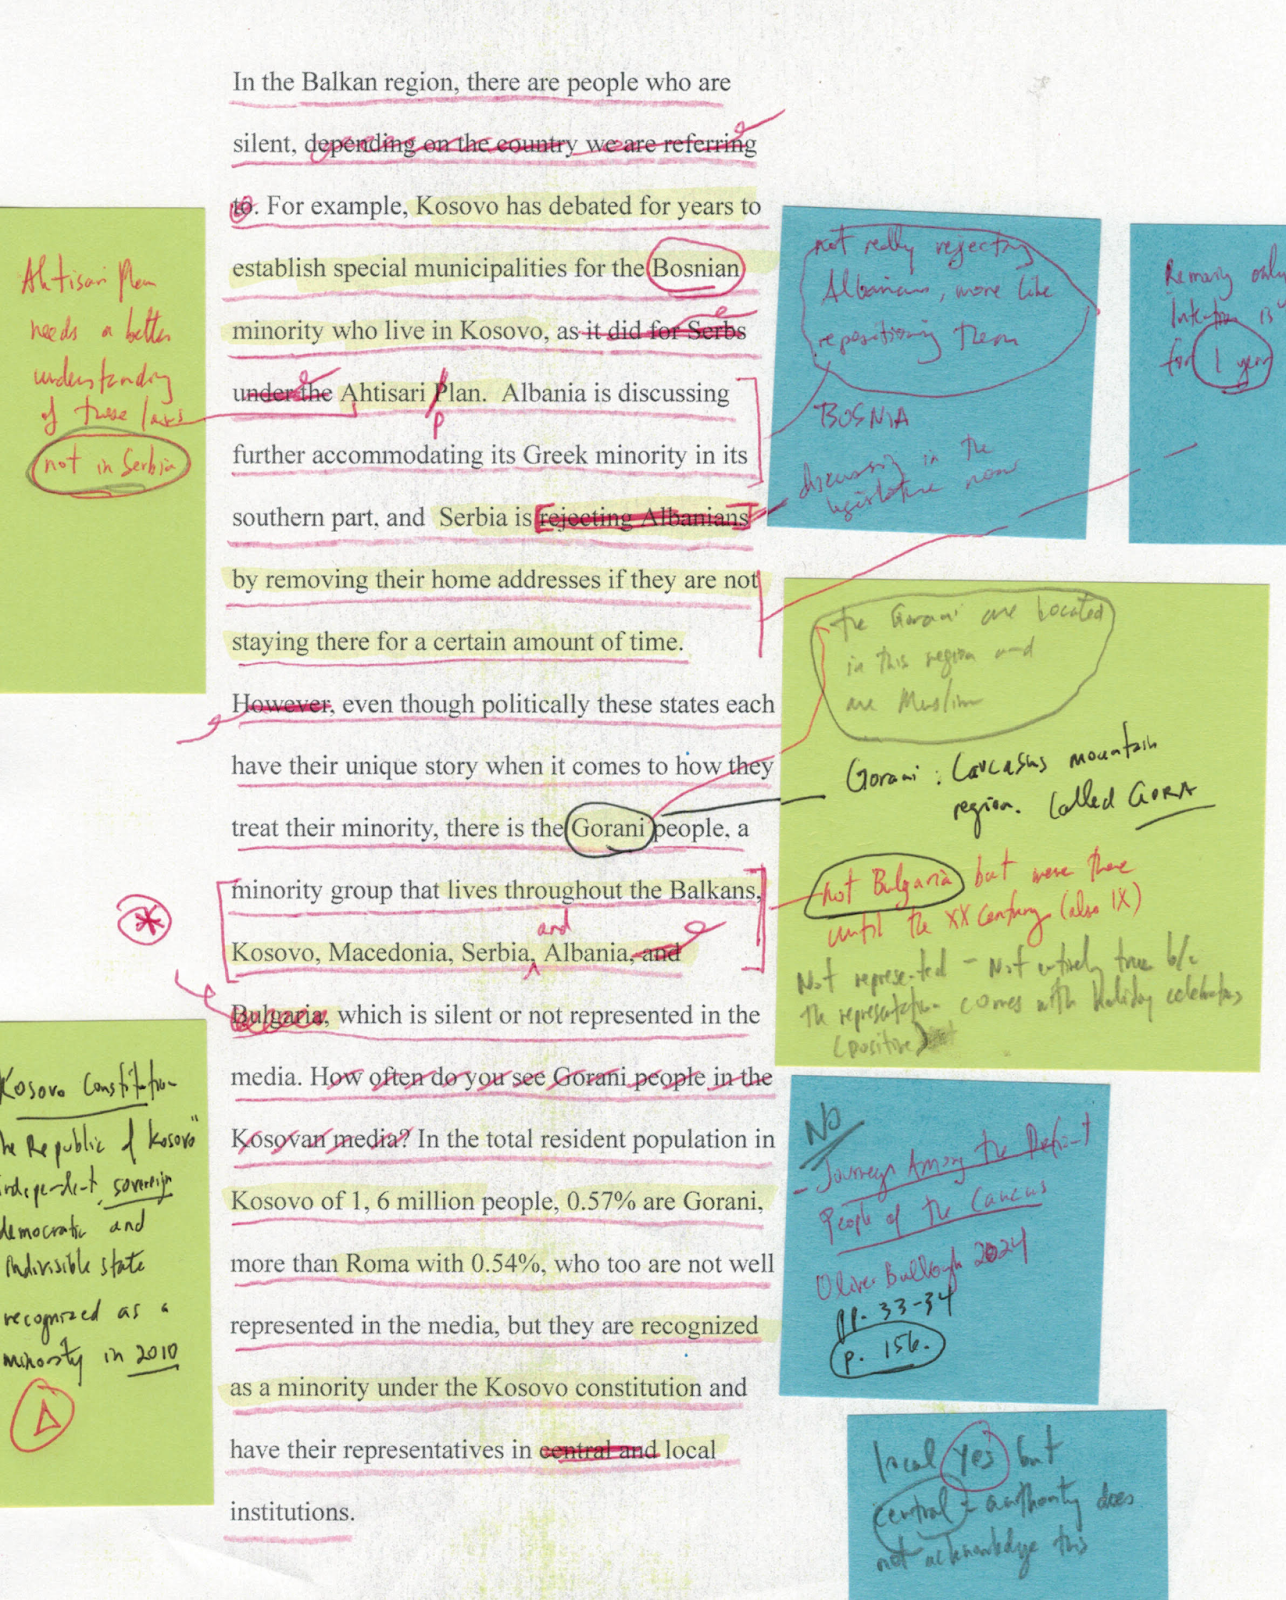 In the Balkan region, there are people who are
silent, depending on the country we are referring
to. For example, Kosovo has debated for years to
establish special municipalities for the Bosnian
minority who live in Kosovo, as it did for Serbs
under the Ahtisari Plan. Albania is discussing
p
further accommodating its Greek minority in its
southern part, and Serbia is rejecting Albanians
by removing their home addresses if they are not
staying there for a certain amount of time.
However, even though politically these states each
have their unique story when it comes to how they
treat their minority, there is the Gorani people, a
minority group that lives throughout the Balkans,
and
Kosovo, Macedonia, Serbia, Albania, and
Bulgaria, which is silent or not represented in the
media. How often do you see Gorani people in the
Kosovan media? In the total resident population in
Kosovo of 1, 6 million people, 0.57% are Gorani,
more than Roma with 0.54%, who too are not well
represented in the media, but they are recognized
as a minority under the Kosovo constitution and
have their representatives in central and local
institutions.
Ahtisari Plan
needs a better
understanding
of these laws
not in Serbia
Kosovo Constitution
he Republic of Kosovo"
independent, sovereign
democratic and
indivisible state
recognized as a
minority in 2010
not really rejecting
Albanians, more like
repositioning them
BOSNIA
discussing in the
legislature now
only
is
for 1 year
the Gorani are located
in this region and
are Muslim
Gorani: Caucasus mountain
region. Called GORA
not Bulgaria but were there
until the XX Century (also IX)
Not represented - Not entirely true b/c
the representation comes with holiday celebrations
(positive)
NO
- Journeys Among the Defiant
People of the Caucus
Oliver Bullough 2024
pp. 33-34
p. 156.
local yes but
central - authority does
not acknowledge this